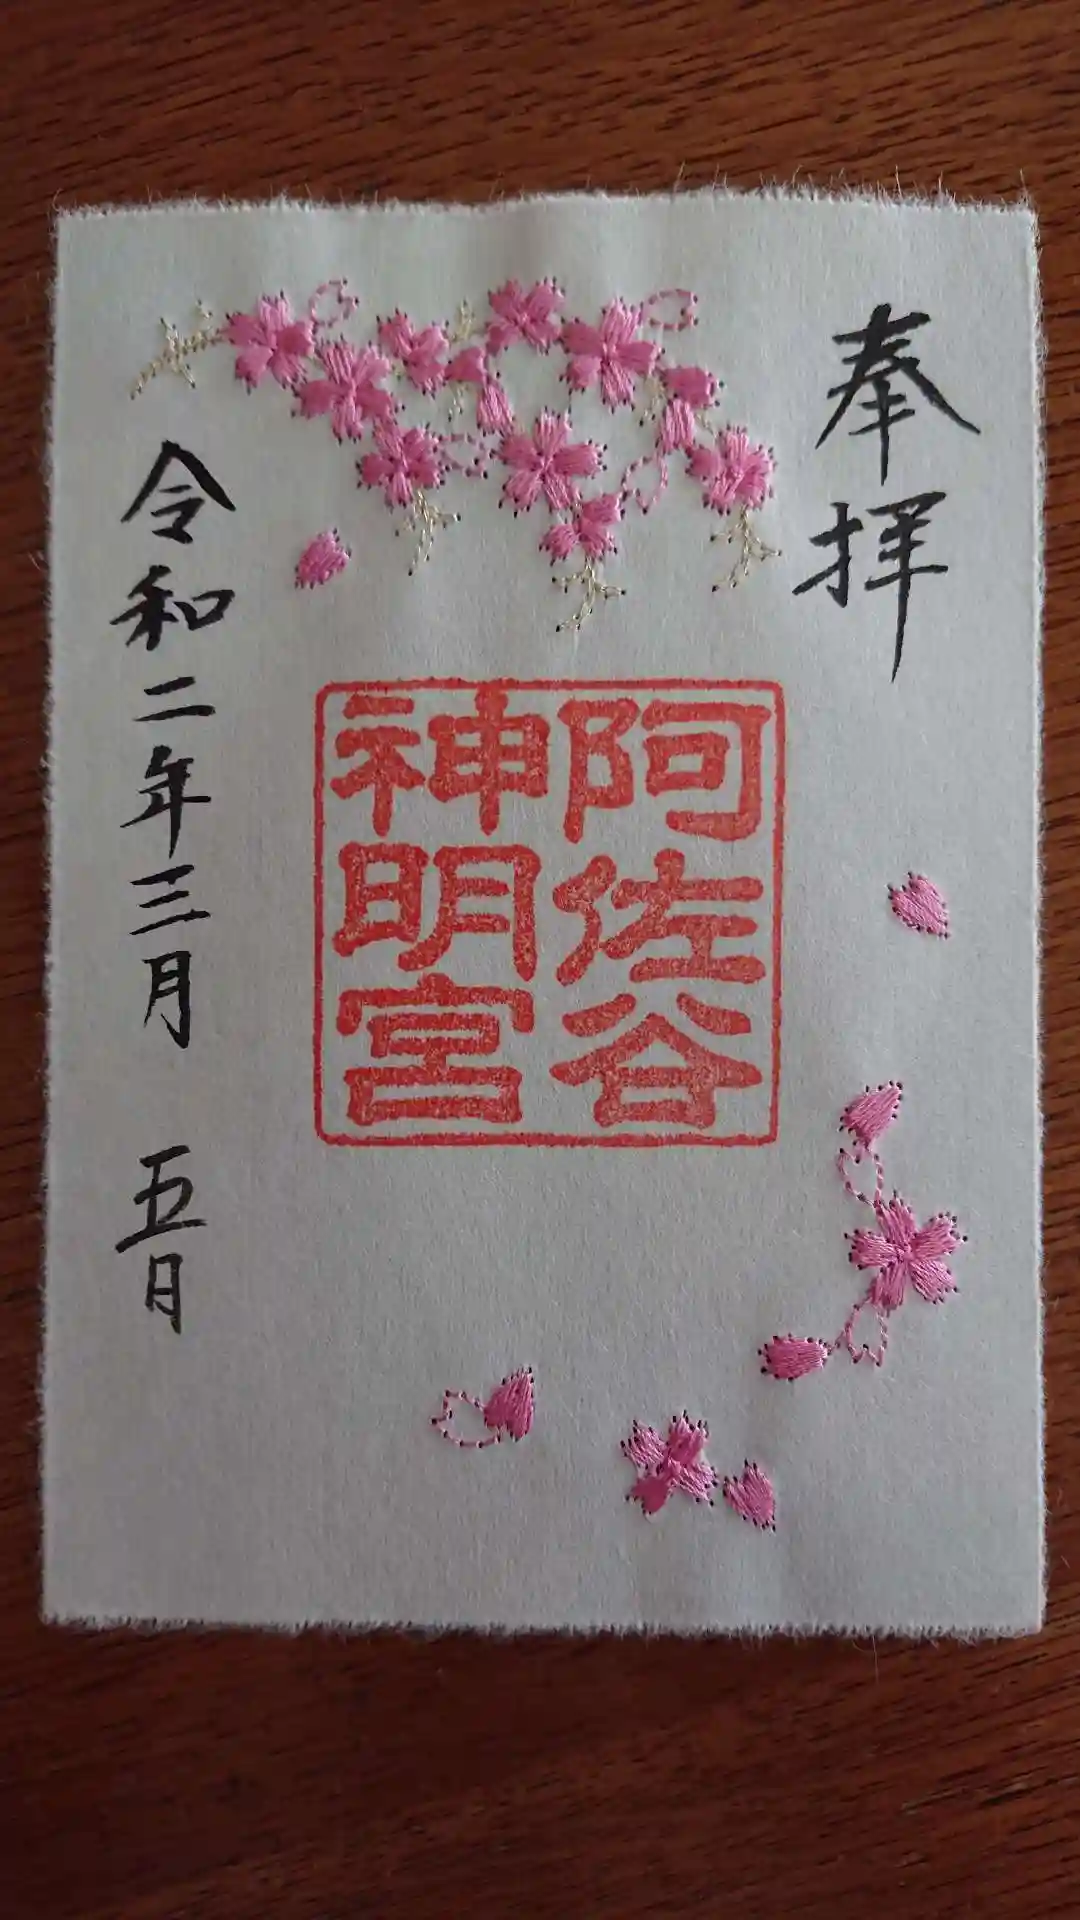 奉拝
阿佐谷
神明宮
令和二年三月 五日